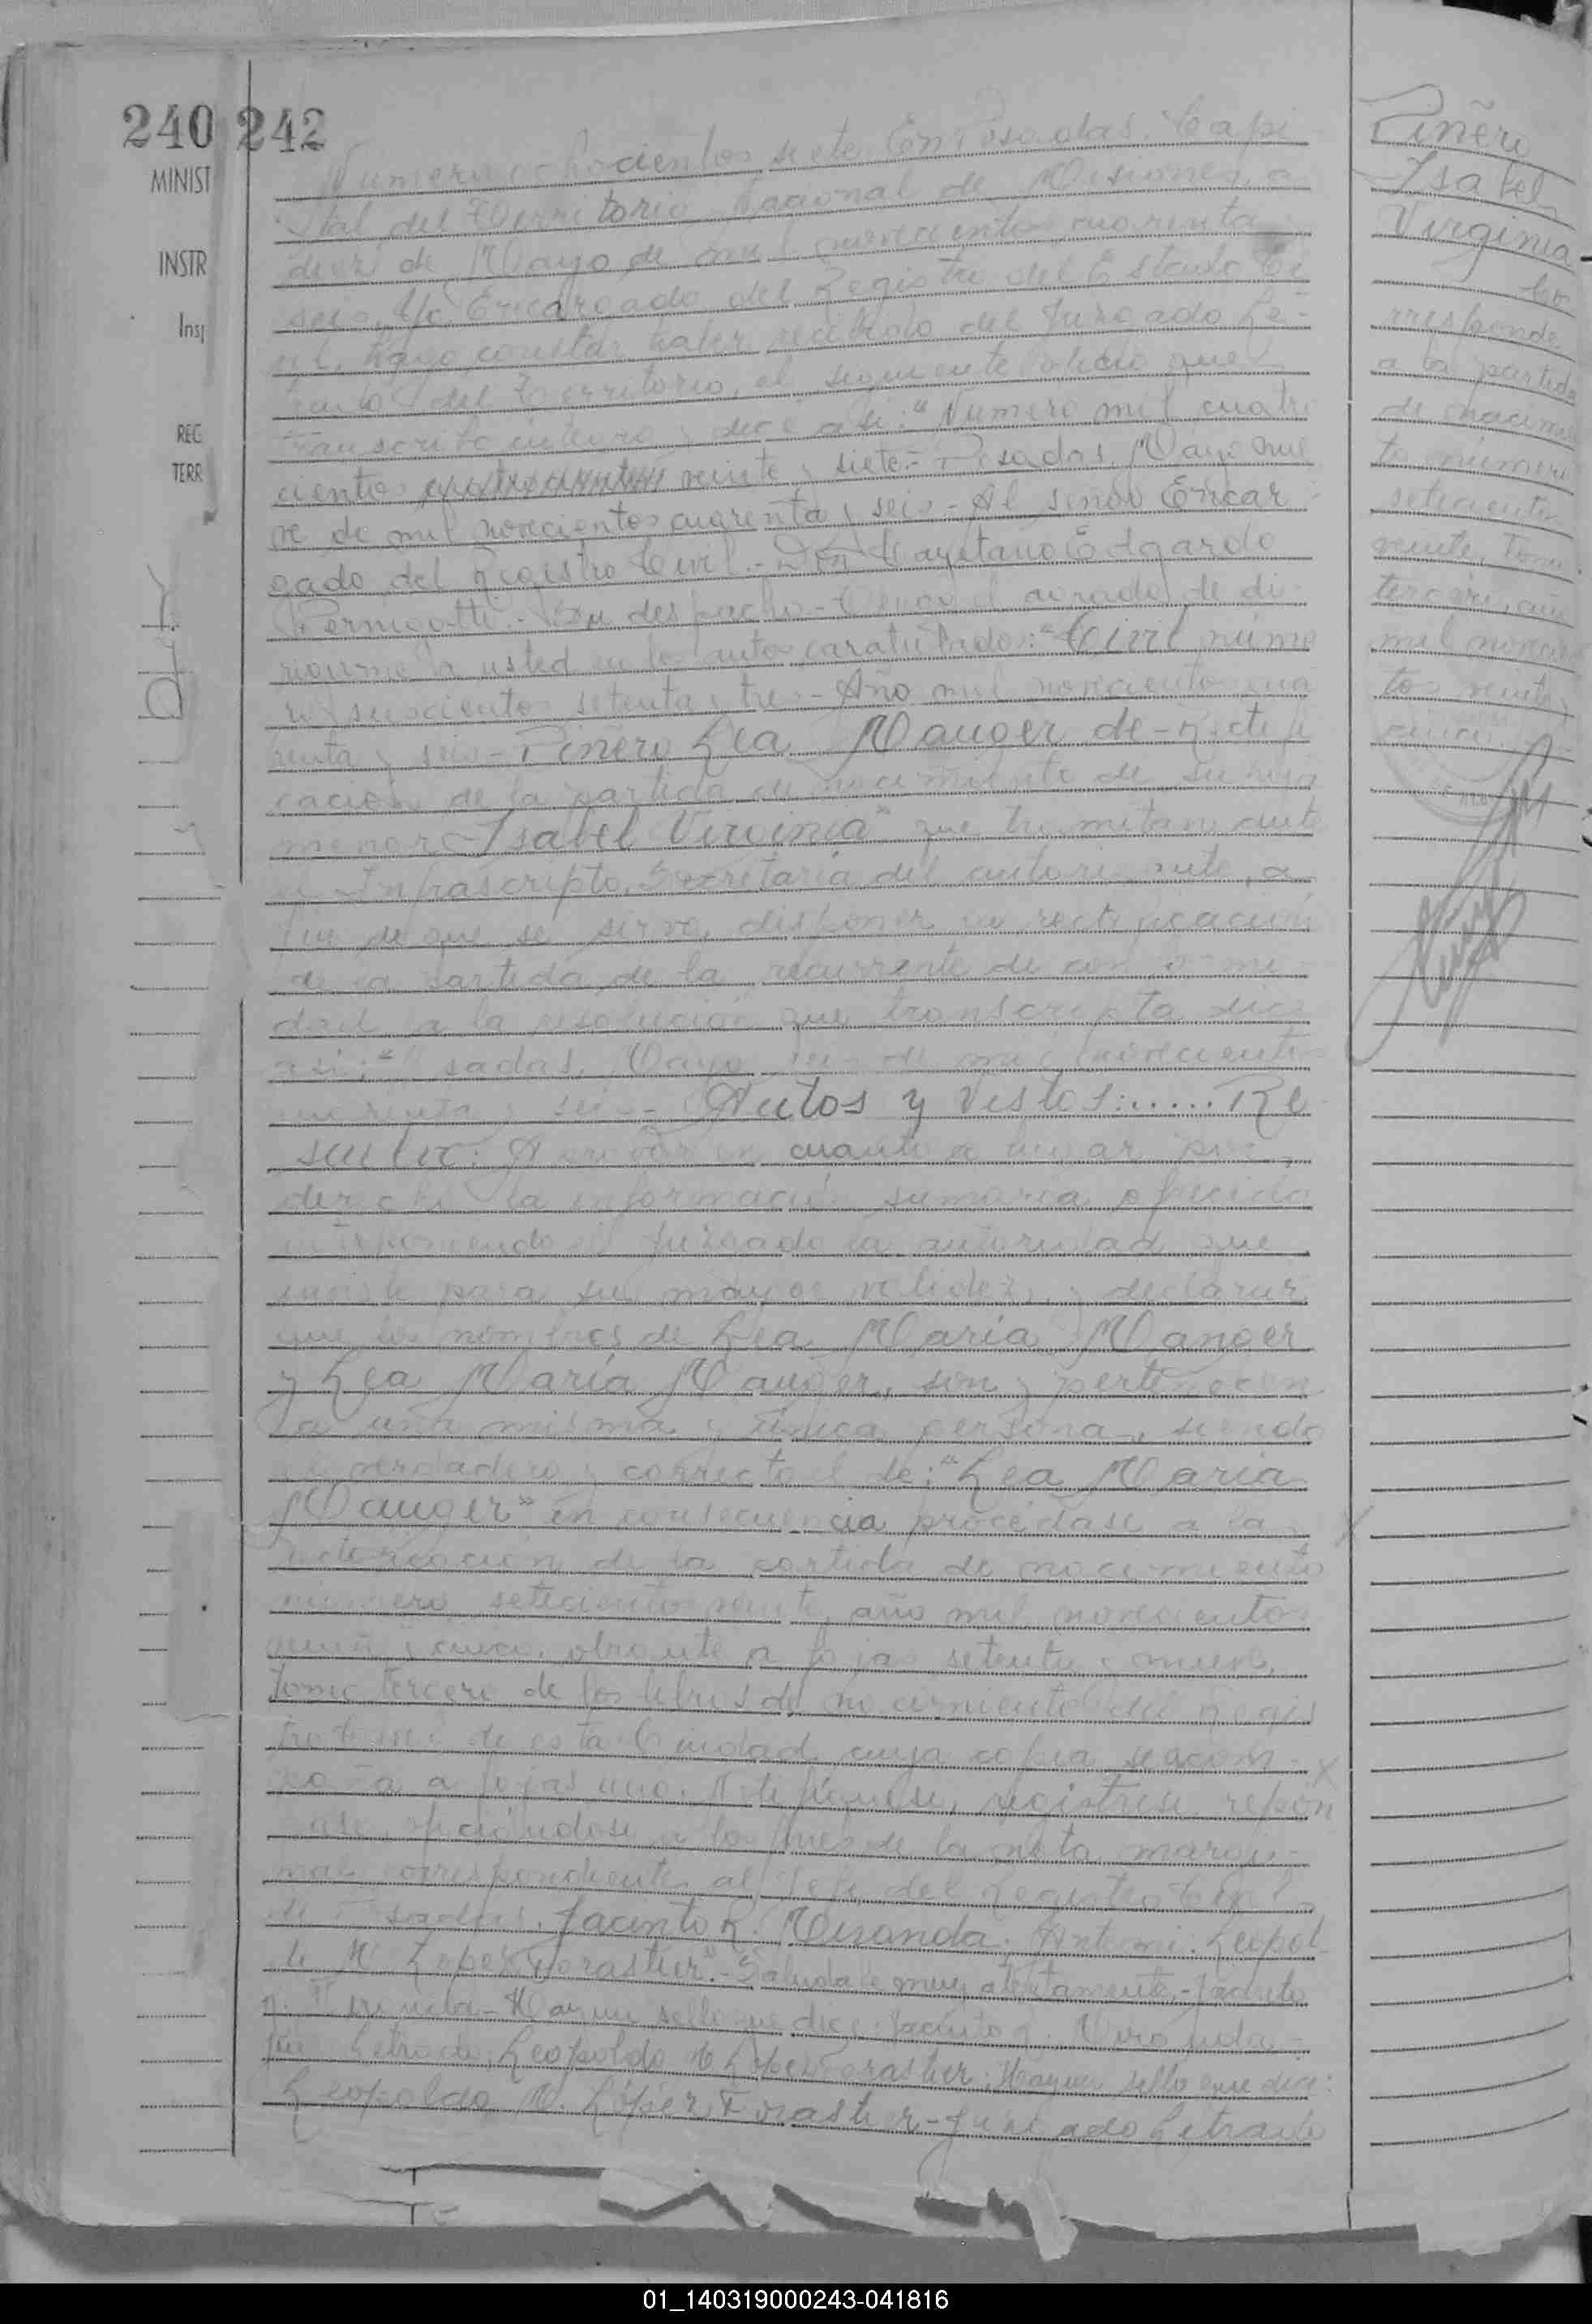 240 242
MINIST
INSTR
Insp
REG
TERR
Número ochocientos siete En Posadas, Capi-
tal del Territorio Nacional de Misiones, a
diez de Mayo de mil novecientos cuarenta y
seis, Yo, Encargado del Registro del Estado Ci
vil, hago constar haber recibido del Juzgado Le-
trado del Territorio, el siguiente oficio que
transcripto integro dice asi: "Número mil cuatro
cientos veinte y siete.- Posadas, Mayo nue
ve de mil novecientos cuarenta y seis.- Al señor Encar
gado del Registro Civil.- Don Cayetano Edgardo
Pernigotti.- Su despacho.- Tengo el agrado de di-
rigirme a usted en los autos caratulados: "Civil núme
ro seiscientos setenta y tres - Año mil novecientos cua
renta y seis - Piñero Lea Mauger de - Rectifi
cación de la partida de nacimiento de su hija
menor Isabel Virginia" que tramitan ante
el Infrascripto, Secretaría del autorizante, a
fin de que se sirva disponer la rectificación
de la partida de la recurrente de conformi-
dad a la resolución que transcripta dice
asi: "Posadas, Mayo seis de mil novecientos
cuarenta y seis - Autos y Vistos:..... Re
suelvo: Aprobar en cuanto a lugar por
derecho la información sumaria ofrecida
interponiendo el Juzgado la autoridad que
inviste para su mayor validez, y declarar
que los nombres de Lea María Manger
y Lea María Mauger, son y pertenecen
a una misma y única persona, siendo
el verdadero y correcto el de: "Lea María
Mauger" en consecuencia procédase a la
rectificación de la partida de nacimiento
número setecientos veinte, año mil novecientos
veinte y cinco, obrante a fojas setenta y nueve,
tomo tercero de los libros de nacimientos del Regis
tro Civil de esta Ciudad, cuya copia se acom-
paña a fojas uno. Notifíquese, regístrese, repón
gase, oficiándose a los fines de la nota margi-
nal correspondiente al Jefe del Registro Civil
de Posadas. Jacinto R. Miranda. Ante mi: Leopol
do M. López Forastier".- Saluda a Ud. muy atentamente.- Jacinto
R. Miranda - Hay un sello que dice: Jacinto R. Miranda -
Juez Letrado; Leopoldo M. López Forastier; Hay un sello que dice:
Leopoldo M. López Forastier - Juzgado Letrado
Piñero
Isabel
Virginia
Co
rresponde
a la partida
de nacimien
to número
setecientos
veinte, Tomo
tercero, año
mil novecien
tos veinte y
cinco.
01_140319000243-041816